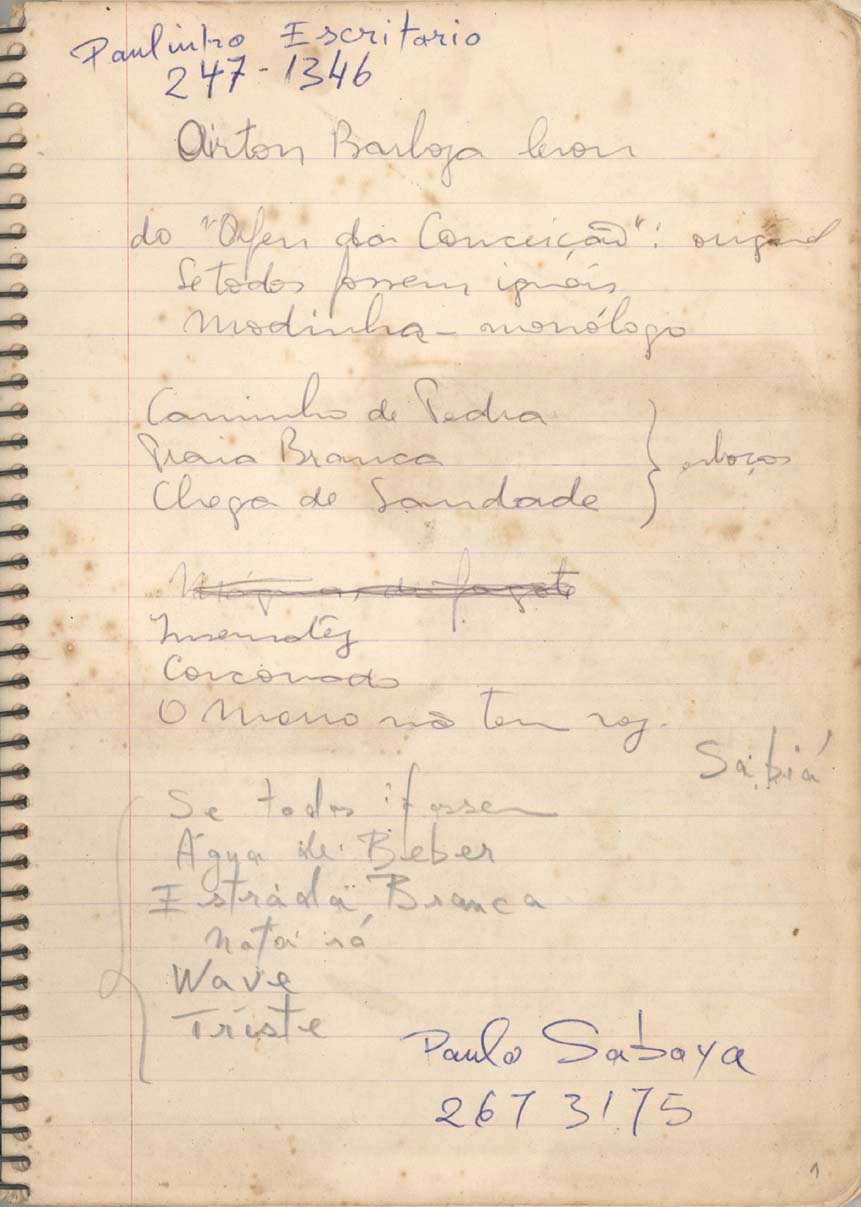 Paulinho Escritario
247-1346
Airton Barboza levou
do "Orfeu da Conceição": original
Se todos fossem iguais
Modinha - monólogo
Caminho de Pedra
Praia Branca
Chega de Saudade
} esboços
Máquina de
Insensatez
Corcovado
O Morro não tem vez.
Sabiá
Se todos fossem
Água de Beber
Estrada Branca
nota só
Wave
Triste
Paulo Sabaya
267 3175
1